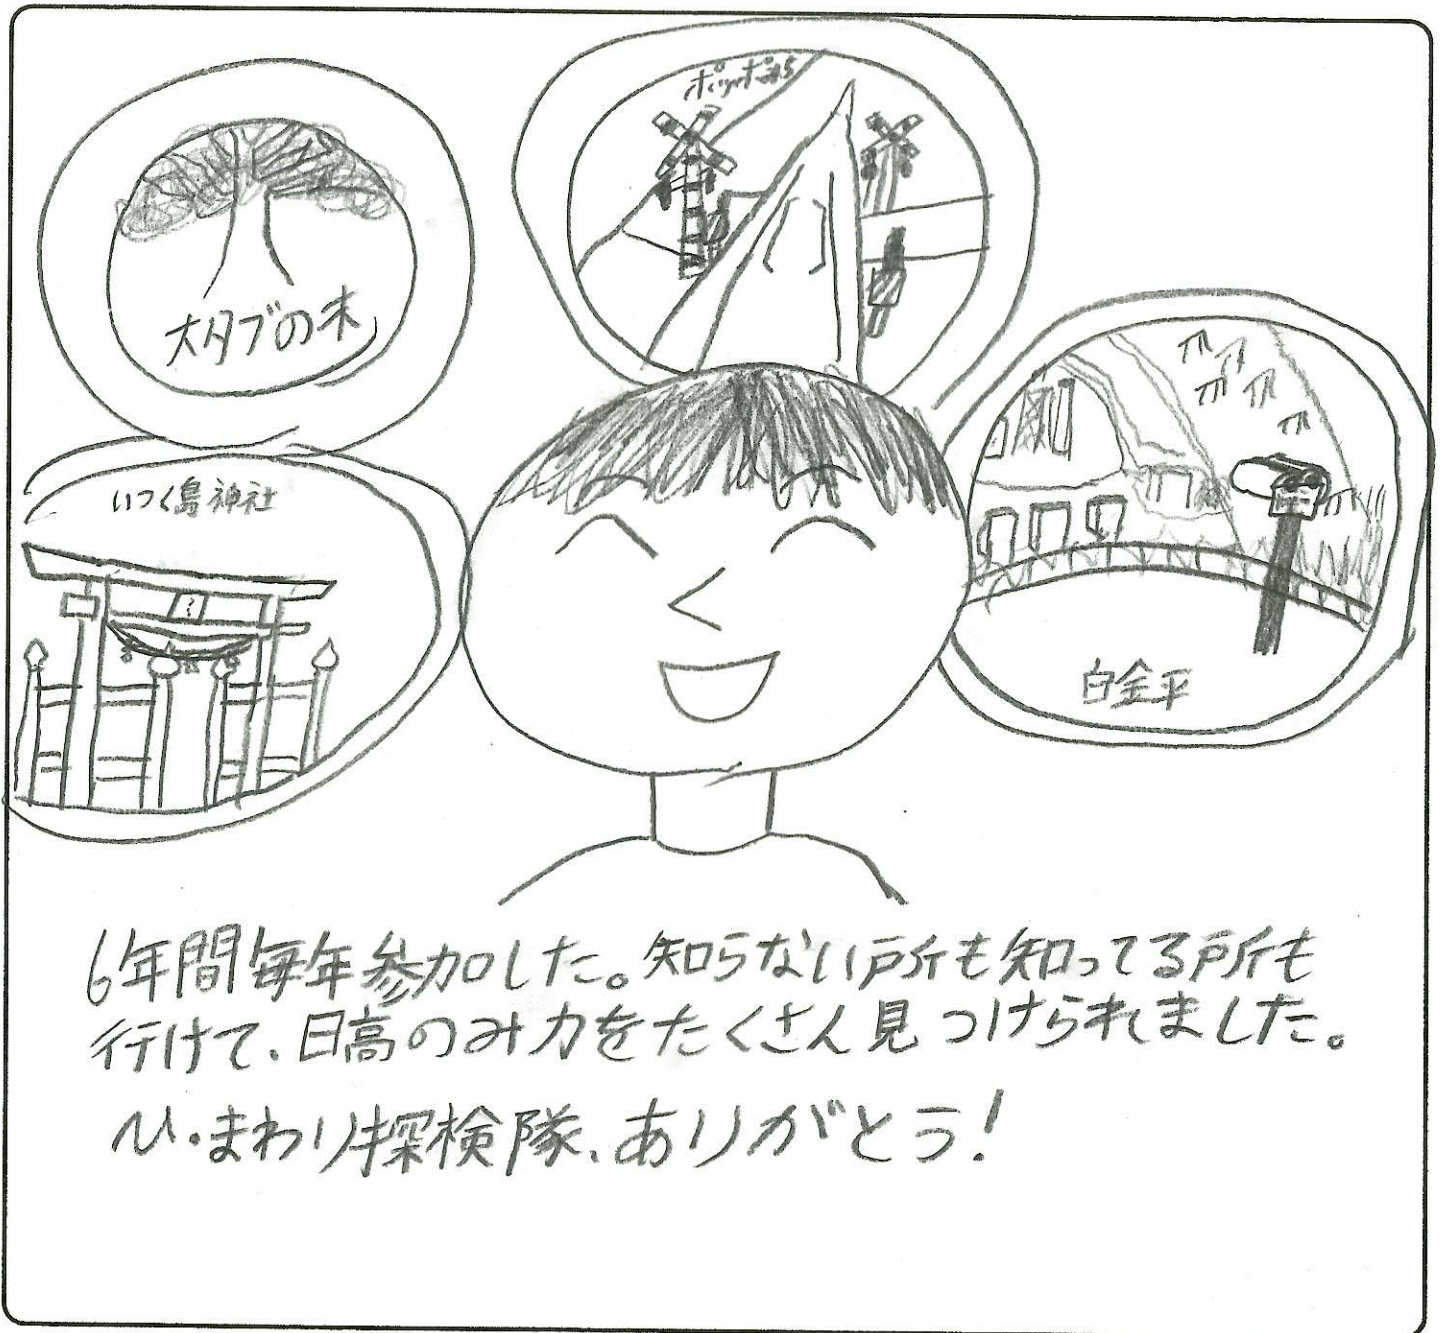 ポッポ
大タブの木
いつく島神社
白金平
6年間毎年参加した。知らない所も知ってる所も
行けて、日高のみ力をたくさん見つけられました。
ひまわり探検隊、ありがとう!